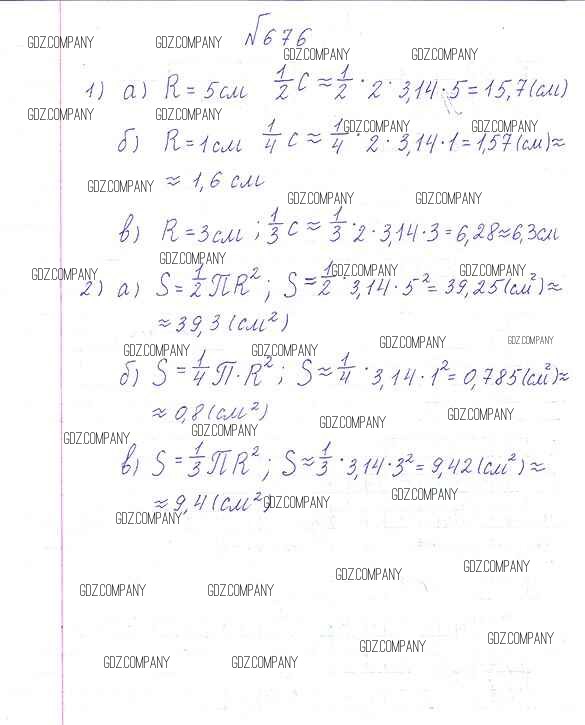 №676
GDZ.COMPANY GDZ.COMPANY GDZ.COMPANY GDZ.COMPANY
1) а) R = 5см 1/2 C ≈ 1/2 · 2 · 3,14 · 5 = 15,7(см)
GDZ.COMPANY GDZ.COMPANY GDZ.COMPANY GDZ.COMPANY
б) R = 1см 1/4 C ≈ 1/4 · 2 · 3,14 · 1 = 1,57(см) ≈
≈ 1,6 см
GDZ.COMPANY GDZ.COMPANY GDZ.COMPANY
в) R = 3см ; 1/3 C ≈ 1/3 · 2 · 3,14 · 3 = 6,28 ≈ 6,3см
GDZ.COMPANY GDZ.COMPANY GDZ.COMPANY GDZ.COMPANY
2) а) S = 1/2 ПR²; S = 1/2 · 3,14 · 5² = 39,25(см²) ≈
≈ 39,3(см²)
GDZ.COMPANY GDZ.COMPANY GDZ.COMPANY GDZ.COMPANY
б) S = 1/4 П · R²; S ≈ 1/4 · 3,14 · 1² = 0,785(см²) ≈
≈ 0,8(см²)
GDZ.COMPANY GDZ.COMPANY GDZ.COMPANY GDZ.COMPANY
в) S = 1/3 ПR²; S ≈ 1/3 · 3,14 · 3² = 9,42(см²) ≈
≈ 9,4(см²)
GDZ.COMPANY GDZ.COMPANY GDZ.COMPANY
GDZ.COMPANY GDZ.COMPANY GDZ.COMPANY GDZ.COMPANY
GDZ.COMPANY GDZ.COMPANY GDZ.COMPANY GDZ.COMPANY